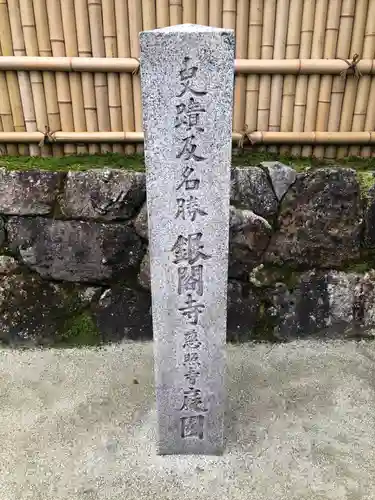 史蹟及名勝銀閣寺慈照寺庭園